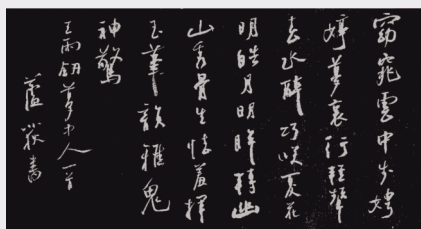 窈窕雲中步娉
婷夢裏行輕顰
春水醉巧笑夏花
明皓月明眸轉幽
山秀骨生怯羞揮
玉筆韻雅鬼
神驚
王雨夢中人一首
蘆荻書